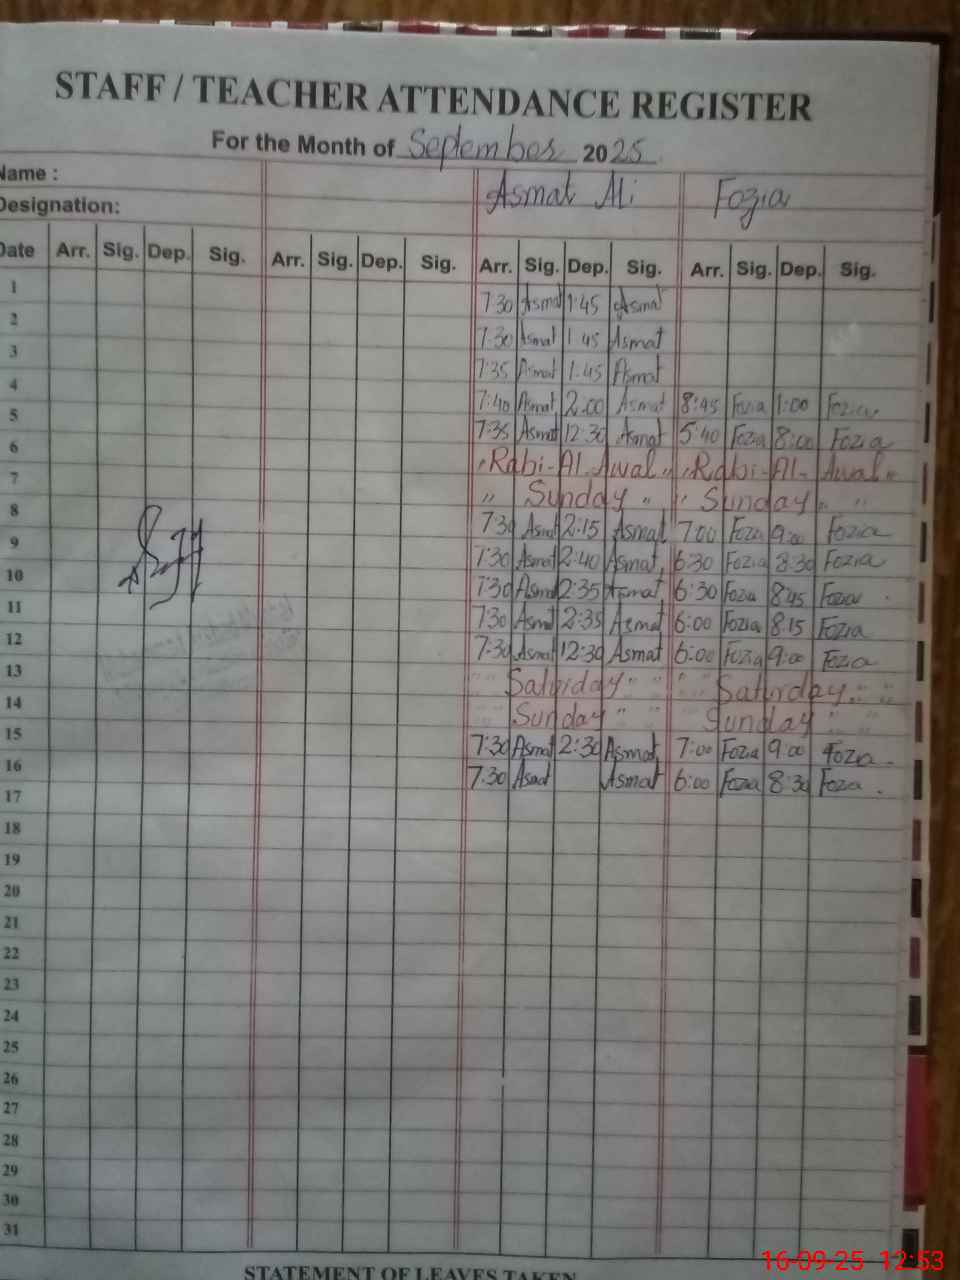 STAFF / TEACHER ATTENDANCE REGISTER
For the Month of September 2025
Name : Asmat Ali Fozia
Designation:
Date Arr. Sig. Dep. Sig. Arr. Sig. Dep. Sig. Arr. Sig. Dep. Sig. Arr. Sig. Dep. Sig.
1 7:30 Asmat 1:45 Asmat
2 7:30 Asmat 1:45 Asmat
3 7:35 Asmat 1:45 Asmat
4 7:40 Asmat 2:00 Asmat 8:45 Fozia 1:00 Fozia
5 7:35 Asmat 12:30 Asmat 5:40 Fozia 8:00 Fozia
6 " Rabi-Al-Awal " " Rabi-Al-Awal "
7 " Sunday " " Sunday " "
8 7:30 Asmat 2:15 Asmat 7:00 Fozia 9:00 Fozia
9 7:30 Asmat 2:40 Asmat 6:30 Fozia 8:30 Fozia
10 7:30 Asmat 2:35 Asmat 6:30 Fozia 8:45 Fozia
11 7:30 Asmat 2:35 Asmat 6:00 Fozia 8:15 Fozia
12 7:30 Asmat 12:30 Asmat 6:00 Fozia 9:00 Fozia
13 " " Saturday " " " " Saturday " "
14 " " Sunday " " " " Sunday " "
15 7:30 Asmat 2:30 Asmat 7:00 Fozia 9:00 Fozia
16 7:30 Asmat Asmat 6:00 Fozia 8:30 Fozia
17
18
19
20
21
22
23
24
25
26
27
28
29
30
31
STATEMENT OF LEAVES TAKEN
16-09-25 12:53